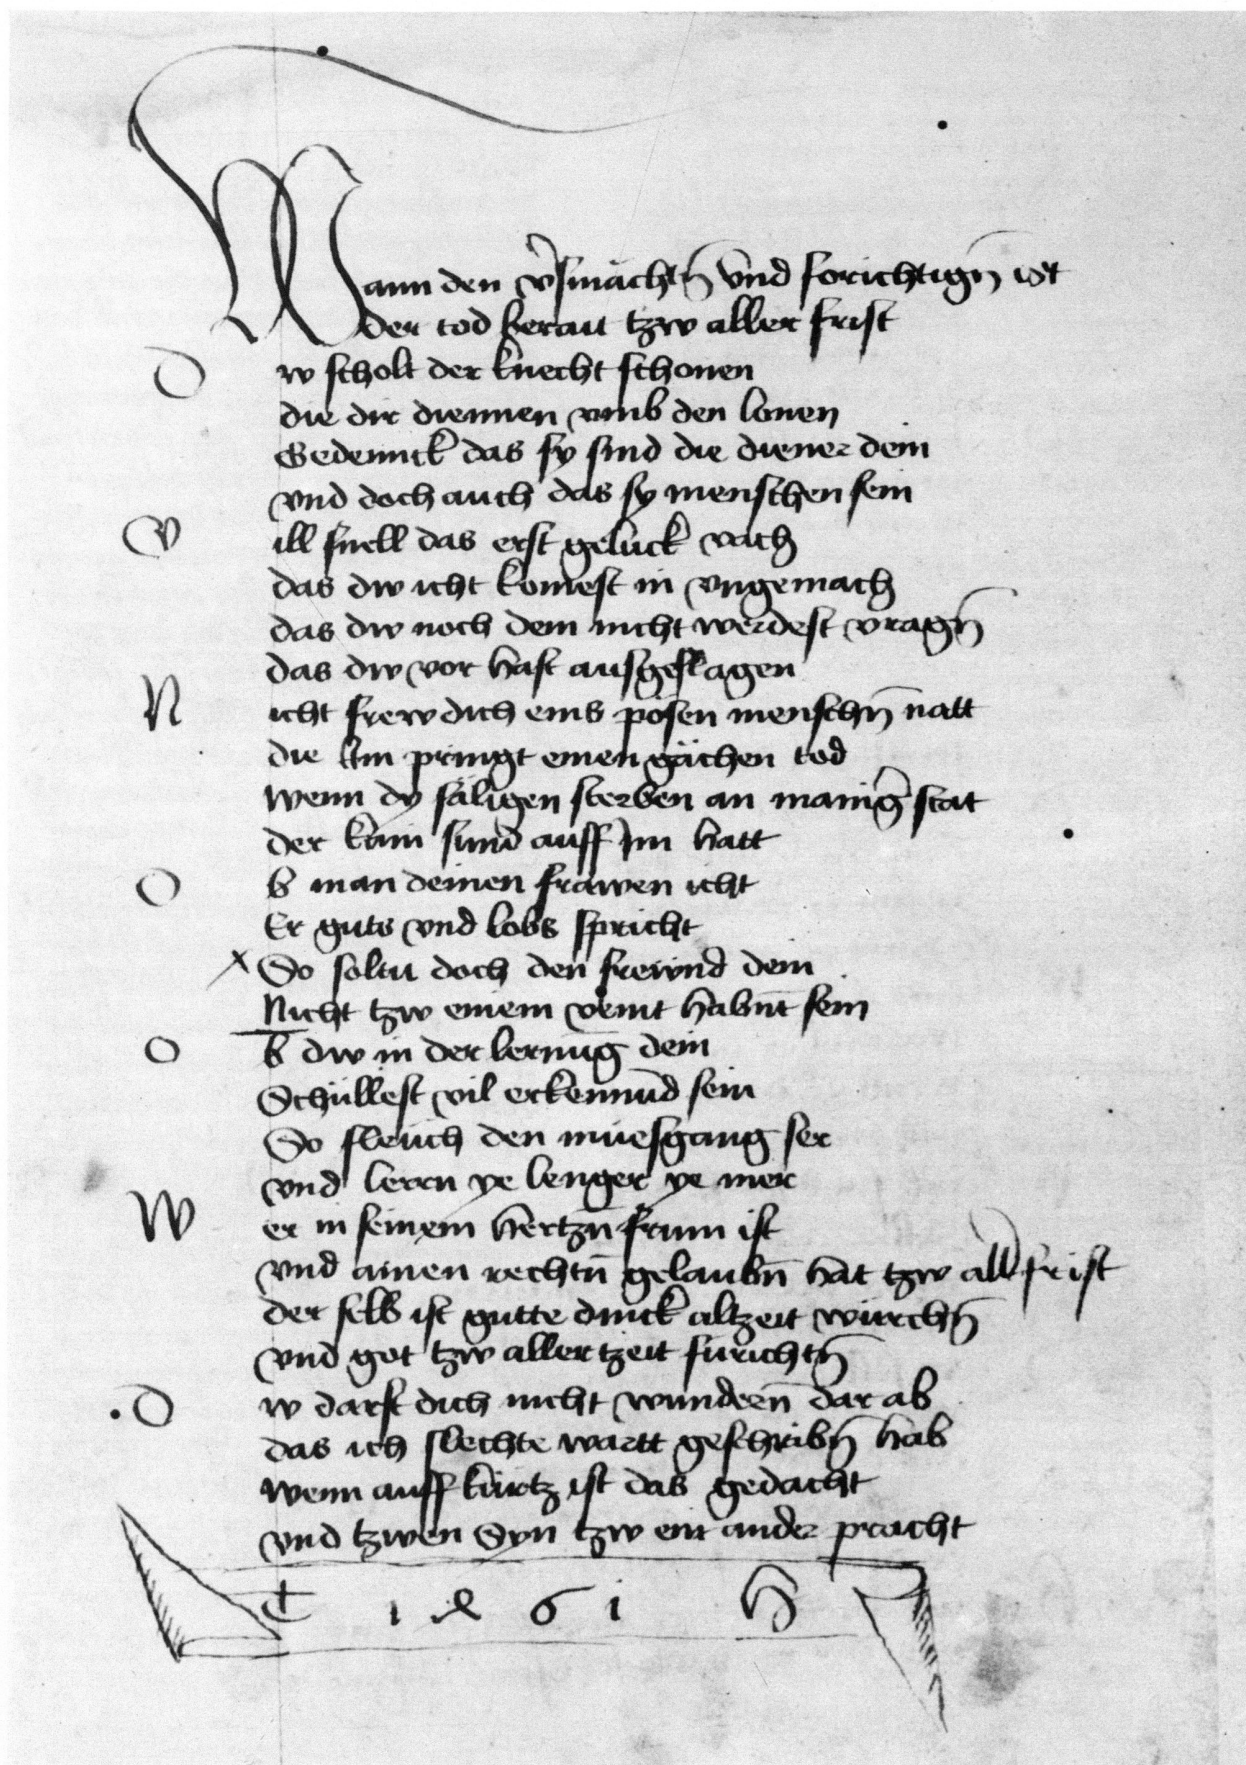 Wann den v̓smächtn̄ vnd forichtign̄ ist
der tod berait tzw aller frist
Dw scholt der knecht schonen
die dir diennen vmb den lonen
Gedennck das sy sind die diener dein
vnd doch auch das sy menschen sein
Vill snell das erst gelück vach
das dw icht komest in vngemach
das dw noch dem nicht werdest vragn̄
das dw vor hast ausgeslagen
Nicht frew dich eins pösen menschn̄ natt
die Im pringt einen gächen tod
wenn dy säligen sterben an manig̓ stat
der kain sund auff Im hatt
Ob man deinen frawen icht
Er guts vnd lobs spricht
So soltu doch den frewnd dein
Nicht tzw einem veint habn̄t sein
Ob dw in der lernūg dein
Schüllest vil erkennūd sein
So fleüch den müesgang ser
vnd lern ye lenger ye mer
Wer in seinem hertzn̄ frum ist
vnd ainen rechtn̄ gelaubn̄ hat tzw all̓ frist
der selb ist gutte dinck altzeit würchn̄
vnd got tzw aller tzeit fürichtn̄
Dw darft dich nicht wundern̄ dar ab
das ich slechte wartt geschribn̄ hab
wenn auff kürtz ist das gedacht
vnd tzwen Syn tzw ein ander pracht
C 1 4 6 1 H